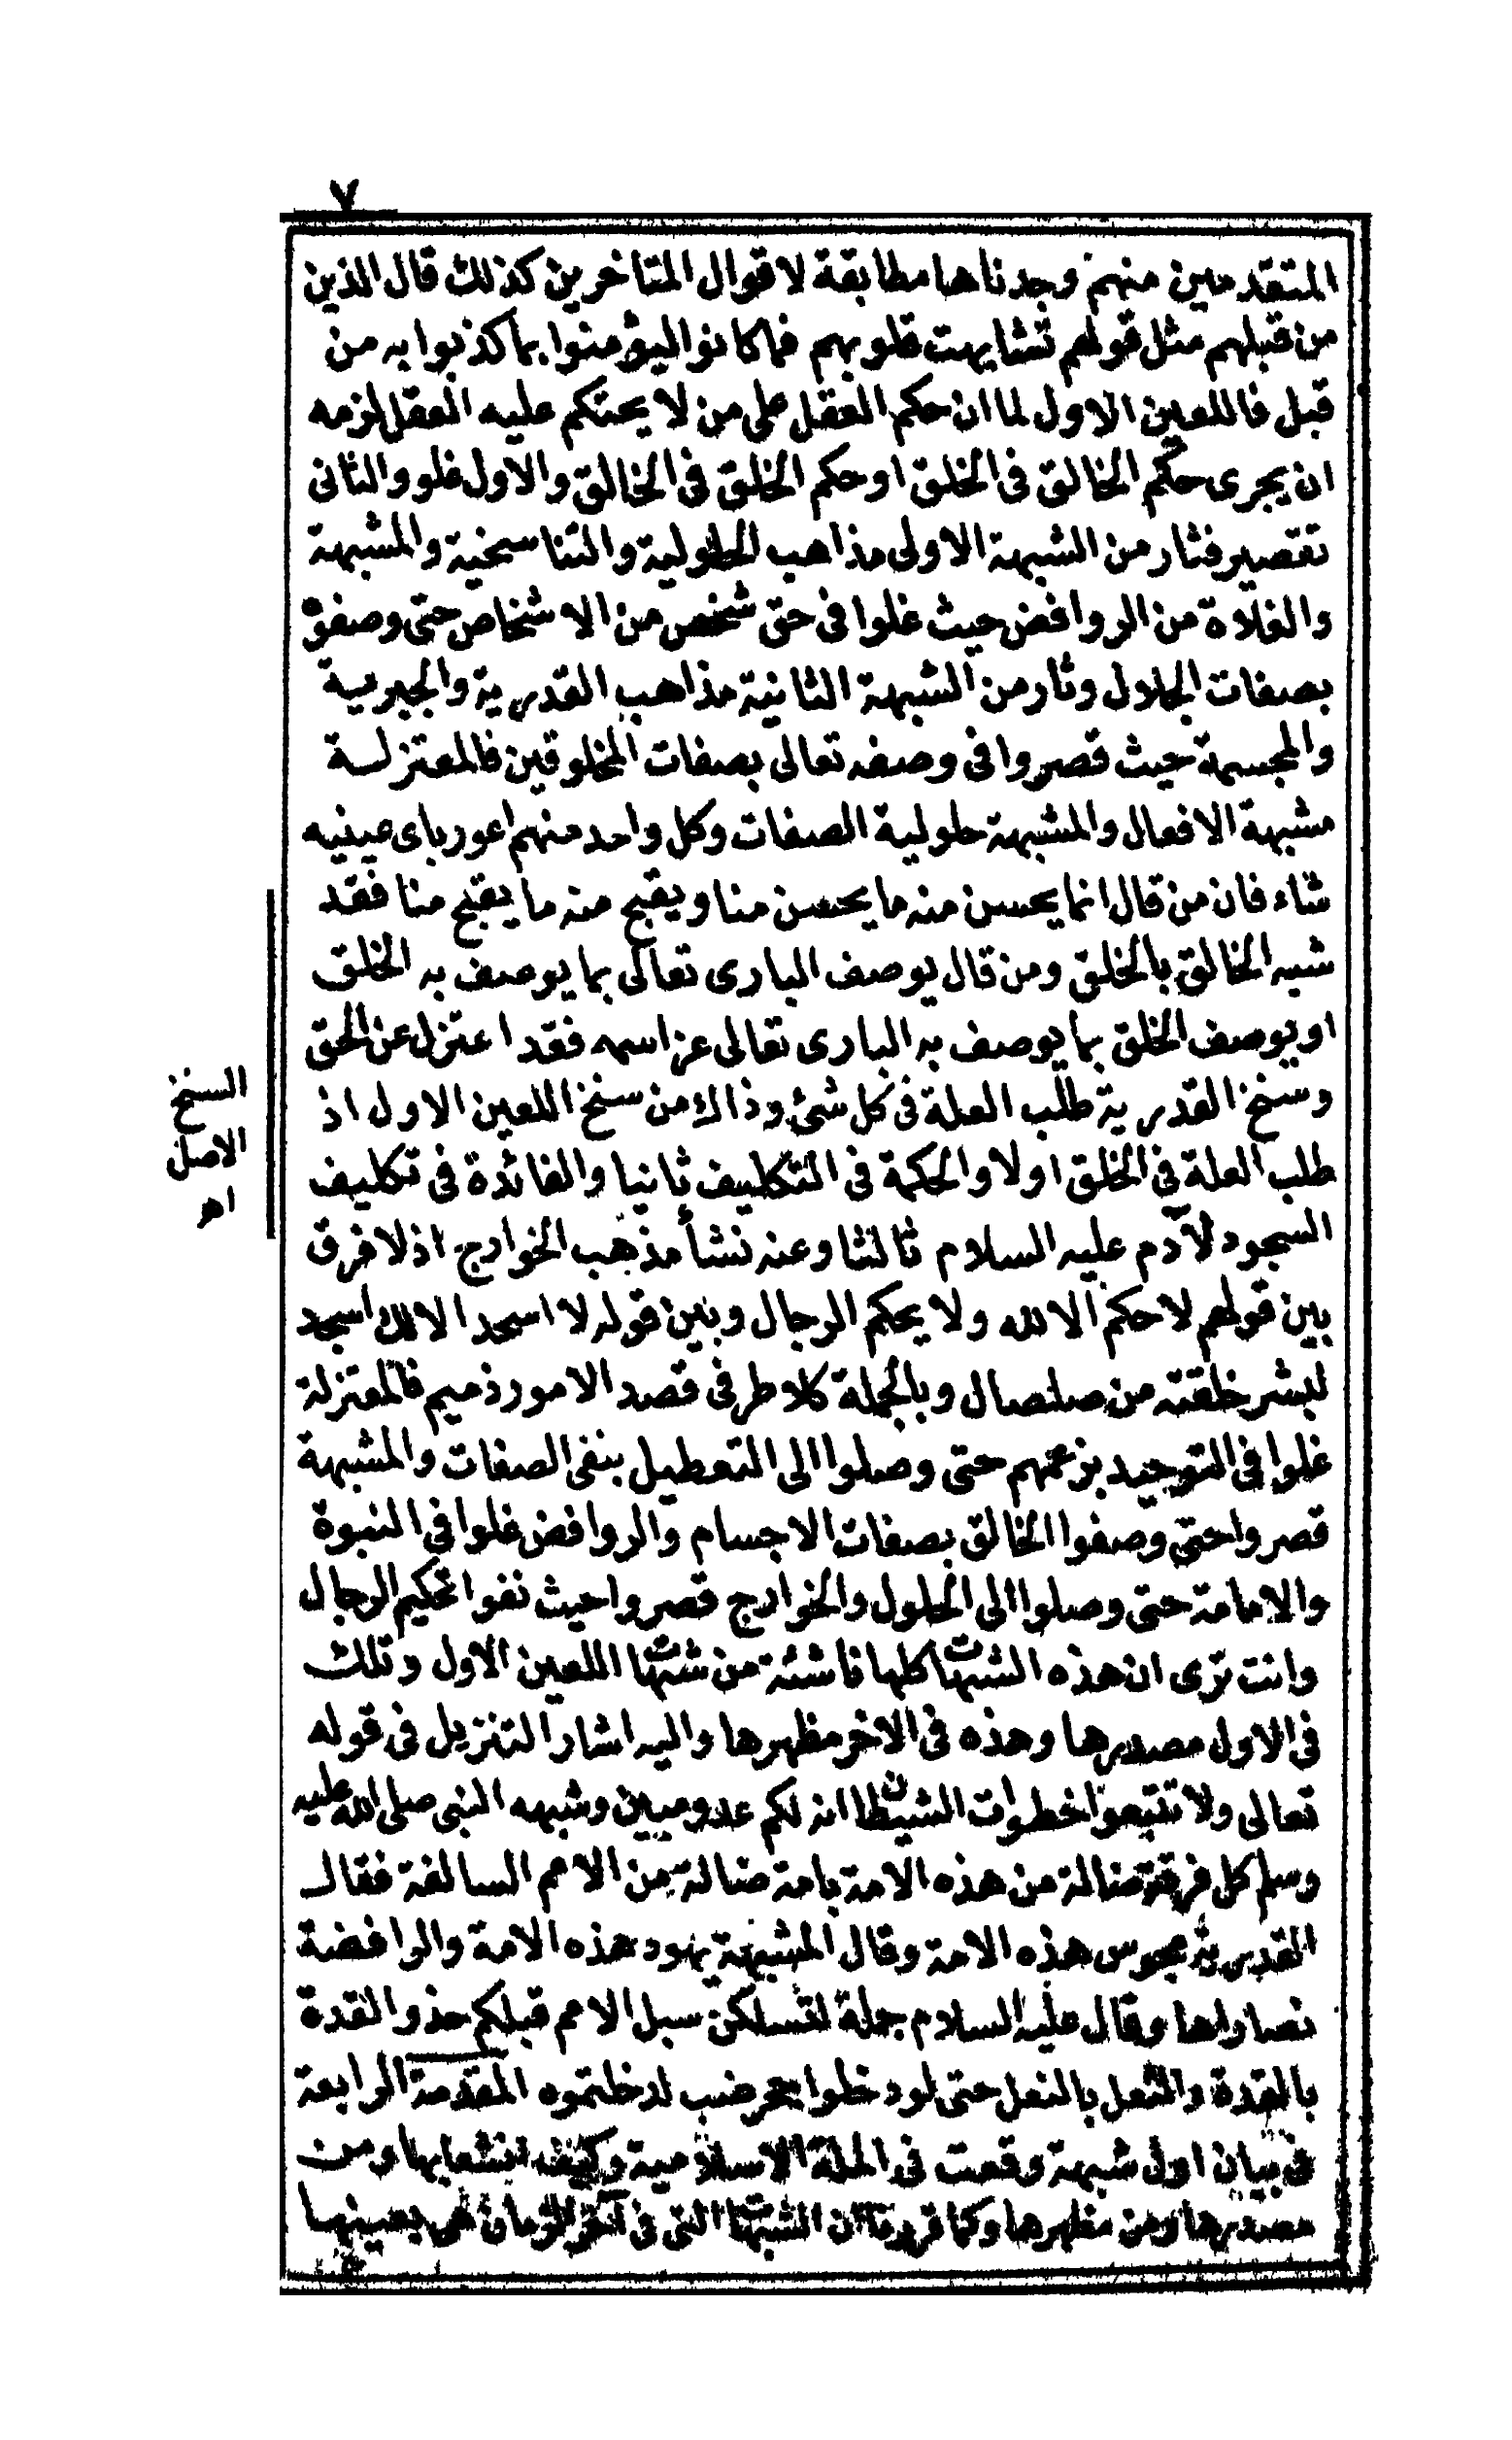 ٧
المتقدمين منهم وجدناها مطابقة لاقوال المتاخرين كذلك قال الذين
من قبلهم مثل قولهم تشابهت قلوبهم فما كانوا ليؤمنوا بما كذبوا به من
قبل فاللعين الاول لما ان حكم العقل على من لا يحتكم عليه العقل لزمه
ان يجرى حكم الخالق فى الخلق او حكم الخلق فى الخالق والاول غلو والثانى
تقصير فثار من الشبهة الاولى مذاهب الحلولية والتناسخية والمشبهة
والغلاة من الروافض حيث غلوا فى حق شخص من الاشخاص حتى وصفوه
بصفات الجلال وثار من الشبهة الثانية مذاهب القدرية والجبرية
والمجسمة حيث قصروا فى وصفه تعالى بصفات المخلوقين فالمعتزلة
مشبهة الافعال والمشبهة حلولية الصفات وكل واحد منهم اعور باى عينيه
شاء فان من قال انما يحسن منه ما يحسن منا ويقبح منه ما يقبح منا فقد
شبه الخالق بالخلق ومن قال يوصف البارى تعالى بما يوصف به الخلق
او يوصف الخلق بما يوصف به البارى تعالى عز اسمه فقد اعتزل عن الحق
وسنخ القدرية طلب العلة فى كل شئ وذاك من سنخ اللعين الاول اذ
طلب العلة فى الخلق اولا والحكمة فى التكليف ثانيا والفائدة فى تكليف
السجود لآدم عليه السلام ثالثا وعنه نشأ مذهب الخوارج اذ لا فرق
بين قولهم لا حكم الا لله ولا يحكم الرجال وبين قوله لا اسجد الا لك اسجد
لبشر خلقته من صلصال وبالجملة كلا طرفى قصد الامور ذميم فالمعتزلة
غلوا فى التوحيد بزعمهم حتى وصلوا الى التعطيل بنفى الصفات والمشبهة
قصروا حتى وصفوا الخالق بصفات الاجسام والروافض غلوا فى النبوة
والامامة حتى وصلوا الى الحلول والخوارج قصروا حيث نفوا تحكيم الرجال
وانت ترى ان هذه الشبهات كلها ناشئة من شبهات اللعين الاول وتلك
فى الاول مصدرها وهذه فى الاخر مظهرها واليه اشار التنزيل فى قوله
تعالى ولا تتبعوا خطوات الشيطان انه لكم عدو مبين وشبهه النبى صلى الله عليه
وسلم كل فرقة ضالة من هذه الامة بامة ضالة من الامم السالفة فقال
القدرية مجوس هذه الامة وقال المشبهة يهود هذه الامة والرافضة
نصاراها وقال عليه السلام جملة لتسلكن سبل الامم قبلكم حذو القذة
بالقذة والنعل بالنعل حتى لو دخلوا جحر ضب لدخلتموه المقدمة الرابعة
فى بيان اول شبهة وقعت فى الملة الاسلامية وكيف انشعابها ومن
مصدرها ومن مظهرها وكما قررنا ان الشبهات التى فى آخر الزمان هى بعينها
السنخ
الاصل
اهـ